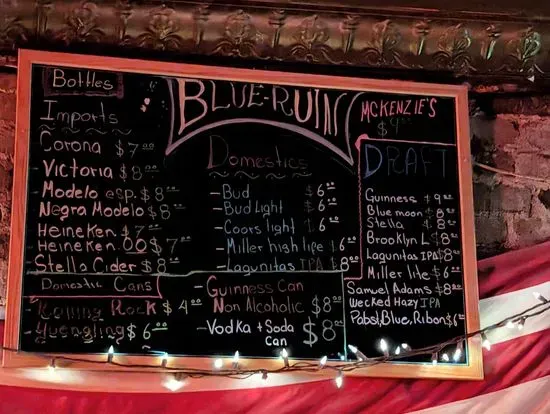 Bottles
Imports
Corona $7.00
- Victoria $8.00
- Modelo esp. $8.00
Negra Modelo $8
Heineken $7.00
- Heineken 00 $7.00
- Stella Cider $8.00
Domestic Cans
- Rolling Rock $4.00
- Yuengling $6.00
BLUE-RUIN
Domestics
- Bud $6.00
- Bud Light $6.00
- Coors light $6
- Miller high life $6.00
- Lagunitas IPA $8.00
- Guinness Can
Non Alcoholic $8.00
- Vodka + Soda
Can $8.00
MCKENZIE'S
$9.00
DRAFT
Guinness $9.00
Blue moon $8
Stella $8
Brooklyn L $8
Lagunitas IPA $8
Miller lite $6
Samuel Adams $8
Wecked Hazy IPA
Pabst, Blue, Ribon $6